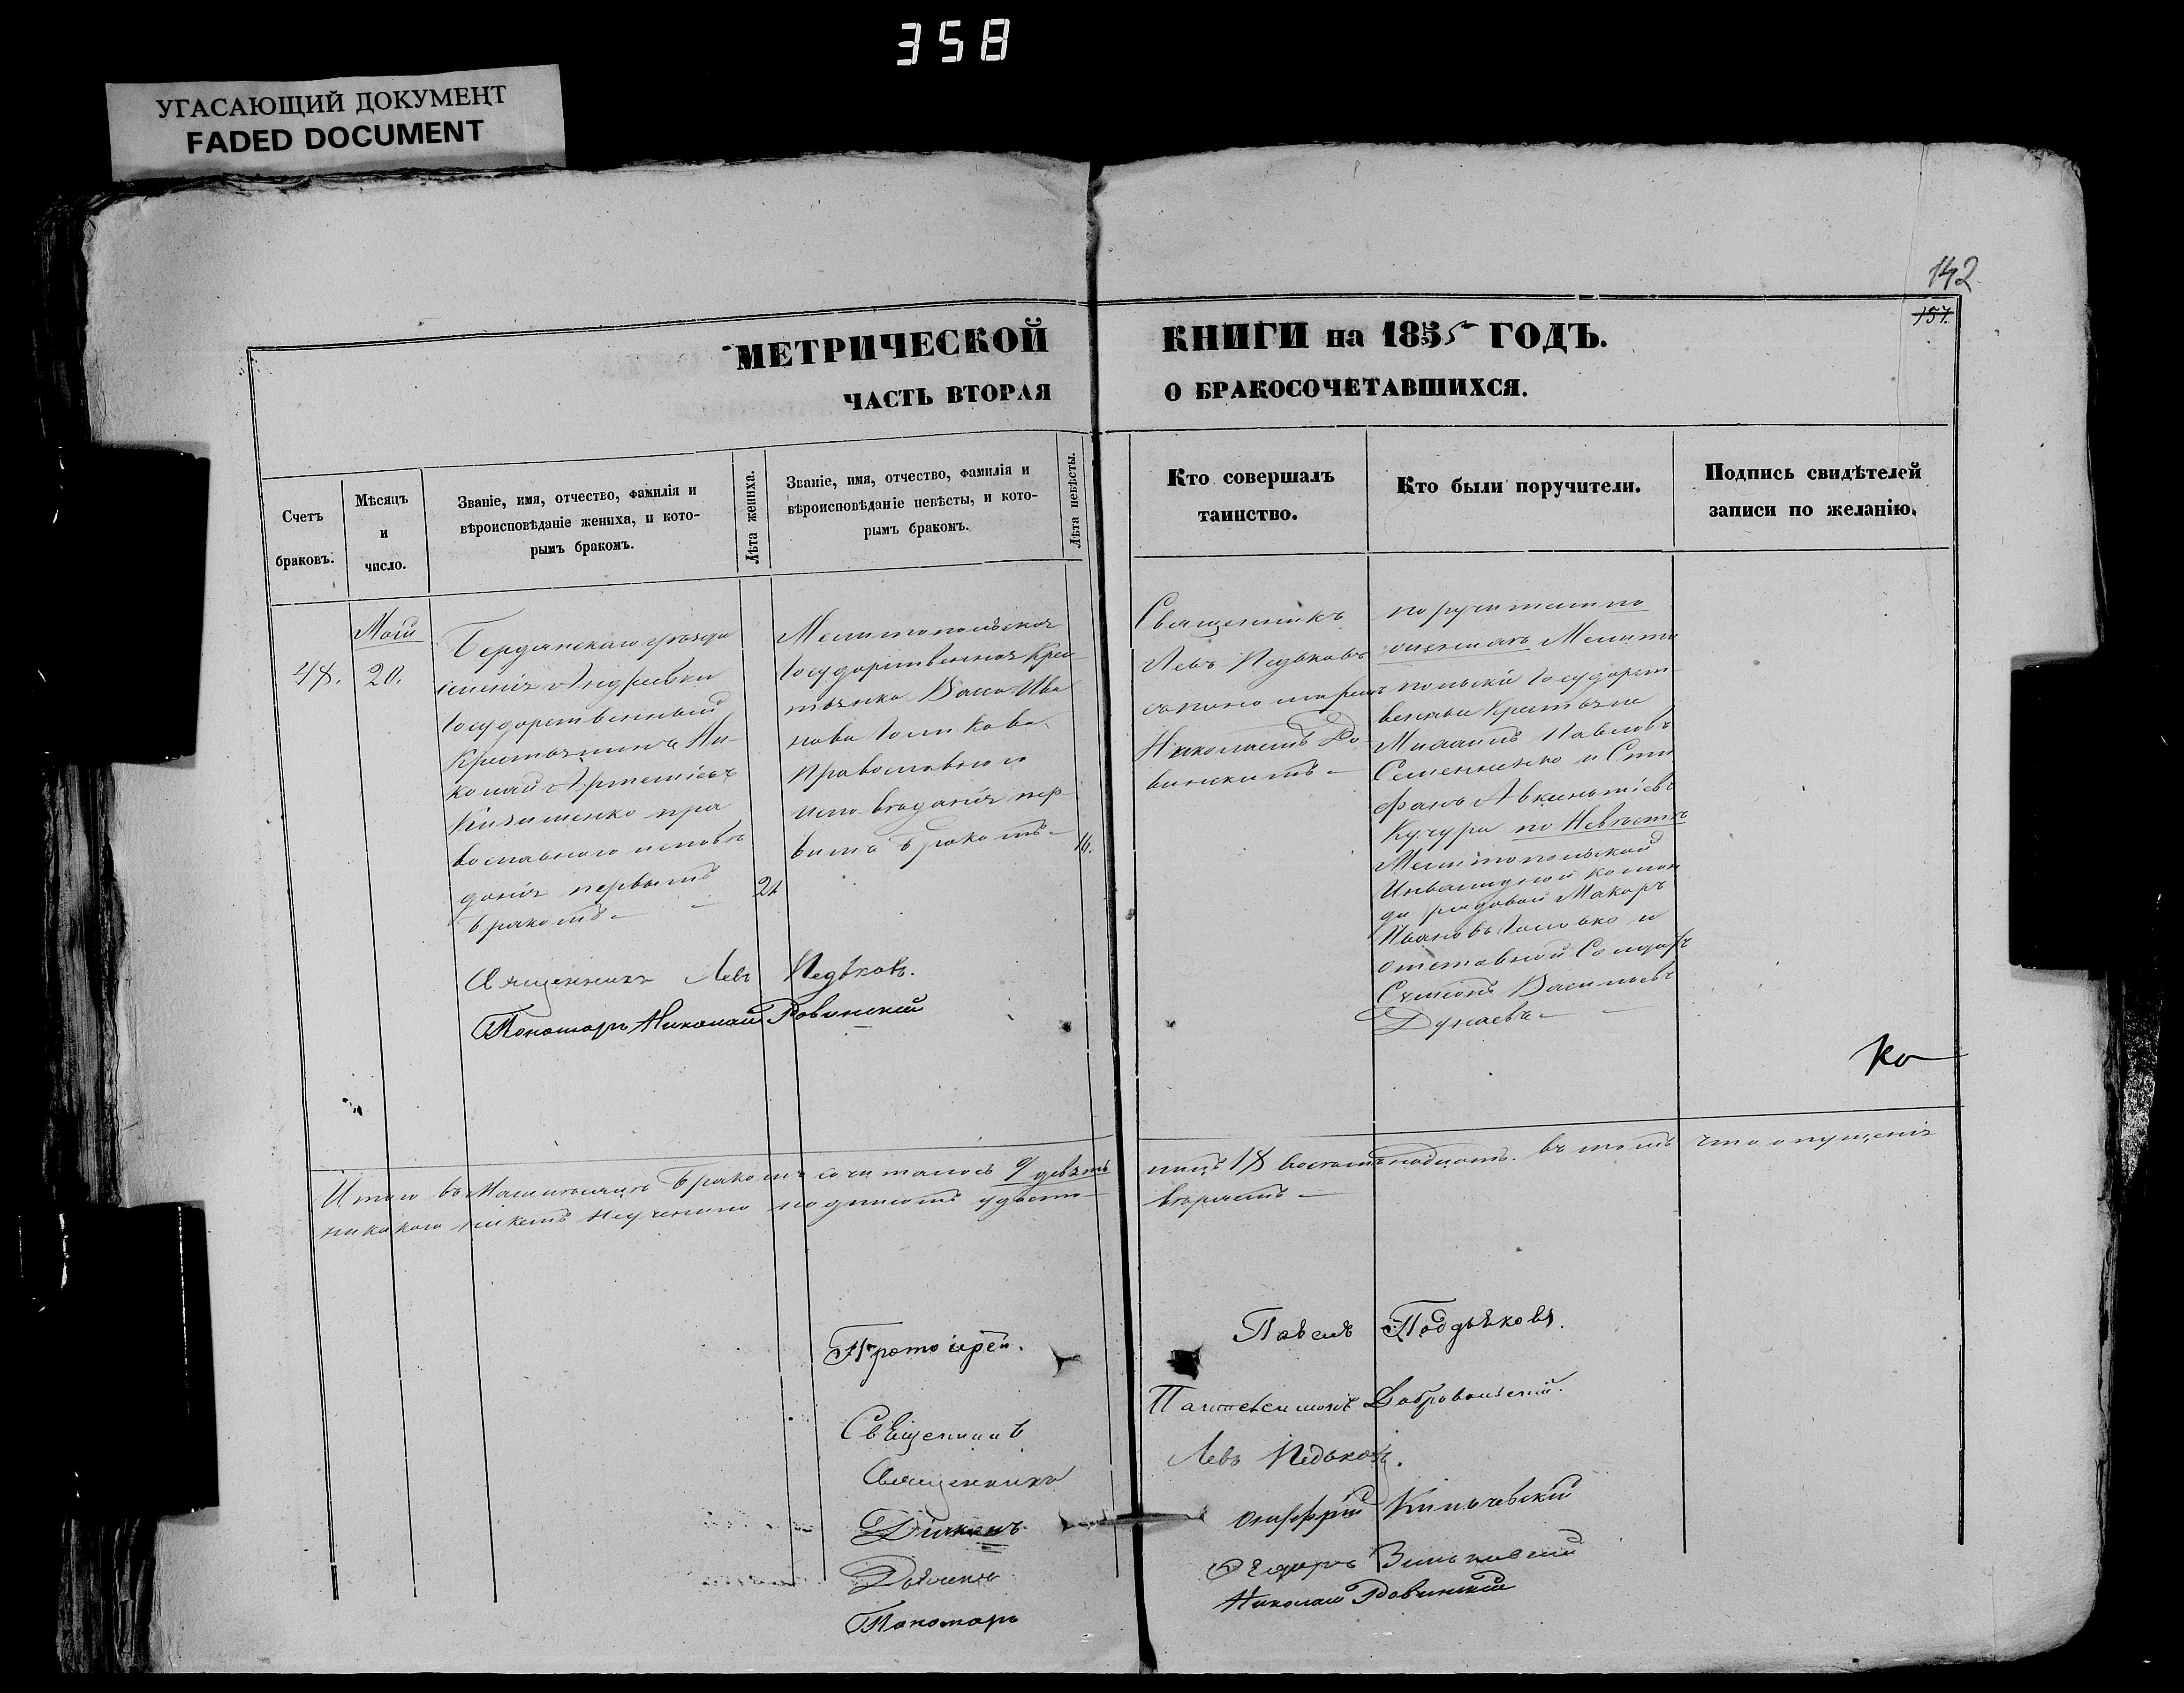 358
УГАСАЮЩИЙ ДОКУМЕНТ
FADED DOCUMENT
142
157.
МЕТРИЧЕСКОЙ КНИГИ на 1855 ГОДЪ.
ЧАСТЬ ВТОРАЯ О БРАКОСОЧЕТАВШИХСЯ.
Счетъ
браковъ.
Мѣсяцъ
и
число.
Званіе, имя, отчество, фамилія и
вѣроисповѣданіе жениха, и кото-
рымъ бракомъ.
Лѣта жениха.
Званіе, имя, отчество, фамилія и
вѣроисповѣданіе невѣсты, и кото-
рымъ бракомъ.
Лѣта невѣсты.
Кто совершалъ
таинство.
Кто были поручители.
Подпись свидѣтелей
записи по желанію.
48.
Маій
20.
Бердянскаго уѣзда
селенія Андреевки
Государственный
Крестьянинъ Ни-
колай Артеміевъ
пра
вославнаго исповѣ
данія первымъ
бракомъ
21
Мелитопольская
Государственная Крес
тьянка Васса Ива
нова Голикова
Православнаго
исповѣданія пер
вымъ бракомъ
16.
Священникъ
Левъ
съ пономаремъ
Николаемъ Ро
винскимъ
поручители по
женихѣ Мелито
польскіе Государст
венные Крестьяне
Михаилъ Павловъ
Семененко и Сте
фанъ
Кучура по Невѣстѣ
Мелитопольской
Инвалидной коман
ды рядовой Макаръ
Ивановъ и
отставной Солдатъ
Симеонъ Васильевъ
Дунаевъ
Священникъ Левъ
Пономарь Николай Ровинскій
Ко
Итого въ Маіи мѣсяцѣ браковъ сочиталось 9 девять
лицъ 18 восемьнадцать. въ томъ что опущенія
никакого подписомъ удосто
вѣряемъ
Протоіерей. Павелъ Поддьяковъ.
Священникъ Пантелеимонъ Добровольскій.
Священникъ Левъ
Діаконъ Онуфрій
Дьячекъ Федоръ Зиньковскій
Пономарь Николай Ровинскій